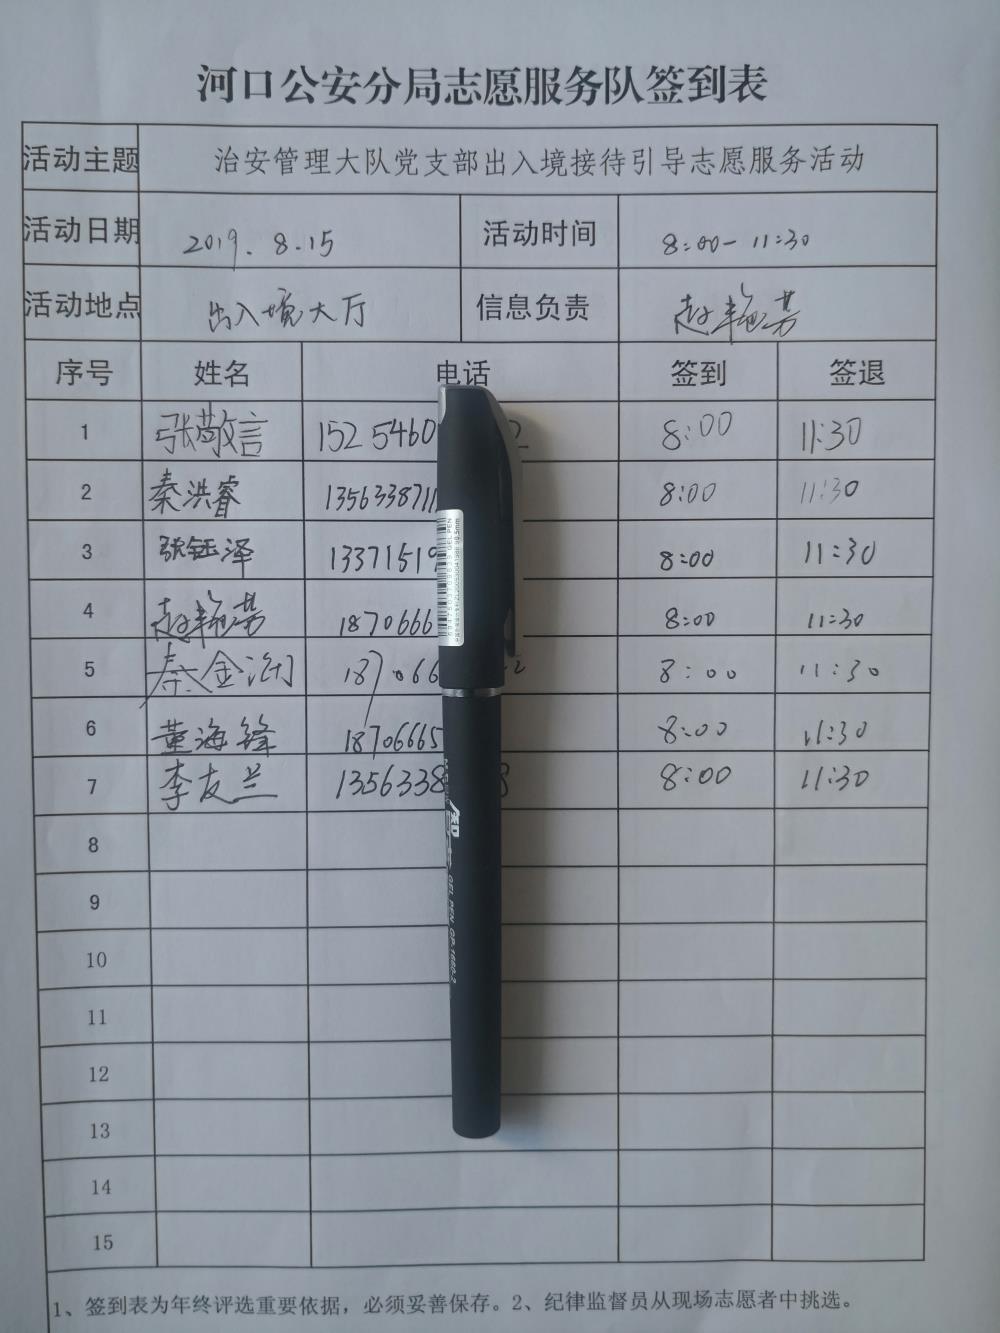 河口公安分局志愿服务队签到表
活动主题 治安管理大队党支部出入境接待引导志愿服务活动
活动日期 2019.8.15 活动时间 8:00-11:30
活动地点 出入境大厅 信息负责 赵艳芳
序号 姓名 电话 签到 签退
1 张敬言 1525460 2 8:00 11:30
2 秦洪睿 1356338711 8:00 11:30
3 张钰泽 13371519 8:00 11:30
4 赵艳芳 1870666 8:00 11:30
5 秦金润 187066 2 8:00 11:30
6 董海锋 18706665 8:00 11:30
7 李友兰 1356338 8 8:00 11:30
8
9
10
11
12
13
14
15
GEL PEN GP-1660-2
1、签到表为年终评选重要依据，必须妥善保存。2、纪律监督员从现场志愿者中挑选。